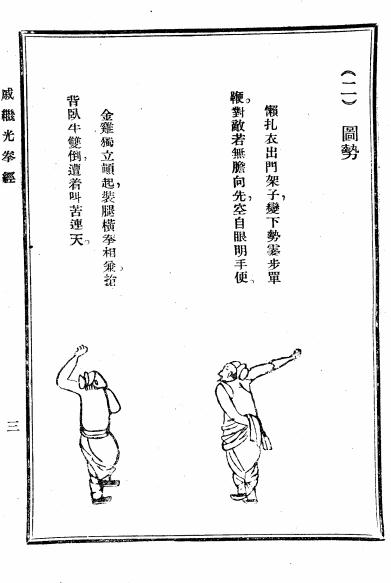 (二) 圖勢
懶扎衣出門架子，變下勢霎步單
鞭。對敵若無膽向先，空自眼明手便。
金雞獨立顛起，裝腿橫拳相兼。搶
背臥牛雙倒，遭着叫苦連天。
戚繼光拳經
三